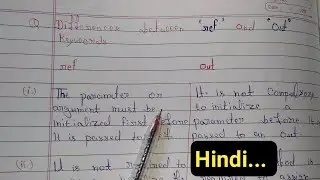 ① Differences between "ref" and "out"
Keywords
ref out
(i.) The parameter or It is not compulsory
argument must be to initialize a
initialized first before parameter before it
It is passed to ref passed to an out
(ii.) It is not required to is
Hindi...